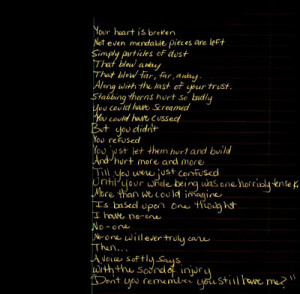 Your heart is broken
Not even mendable pieces are left
Simply particles of dust
That blew away
That blow far, far, away.
Along with the last of your trust.
Stabbing thorns hurt so badly
You could have screamed
You could have cussed
But you didn't
You refused
You just let them hurt and build
And hurt more and more
Till you were just confused
Until your whole being was one horribly tense
More than we could imagine
Is based upon one thought
I have no-one
No-one
No-one will ever truly care
Then...
A voice softly says
With the sound of injury
Don't you remember you still have me?"